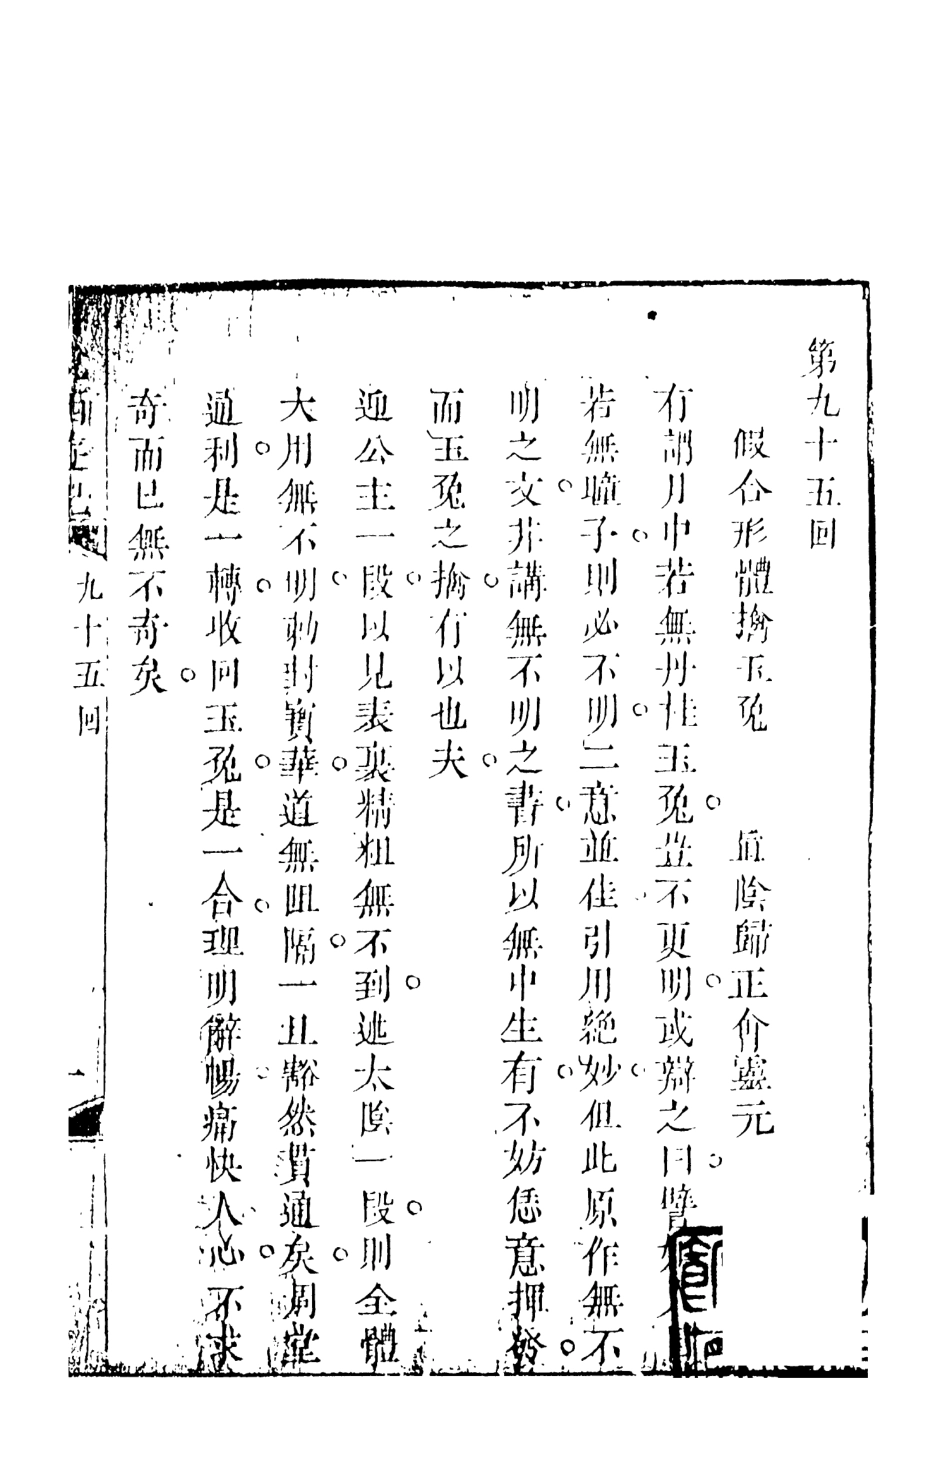 第九十五回
假合形體擒玉兔　眞陰歸正會靈元
有謂月中若無丹桂玉兔豈不更明或辯之曰譬
若無瞳子則必不明二意並佳引用絶妙但此原作無不
明之文非講無不明之書所以無中生有不妨恁意押發
而玉兔之擒有以也夫
迎公主一段以見表裏精粗無不到逃太陰一段則全體
大用無不明勅封寶華道無阻隔一旦豁然貫通矣周堂
通利是一轉收回玉兔是一合理明辭暢痛快人心不求
奇而已無不奇矣
九十五回
一